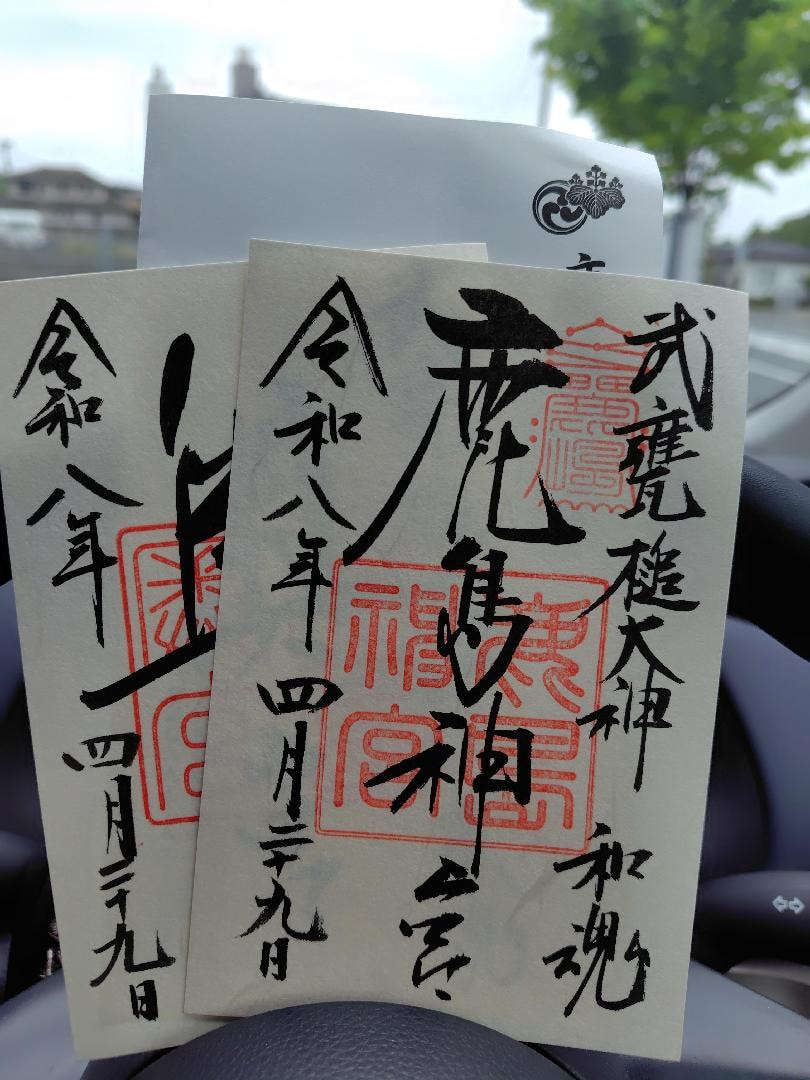 武甕槌大神 和魂
鹿島神宮
令和八年 四月二十九日
鹿島神宮
令和八年 四月二十九日